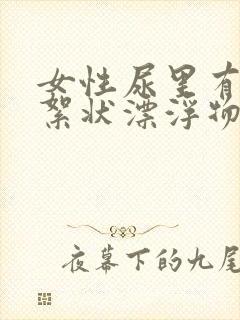 女性尿里有
絮状漂浮物
夜幕下的九尾